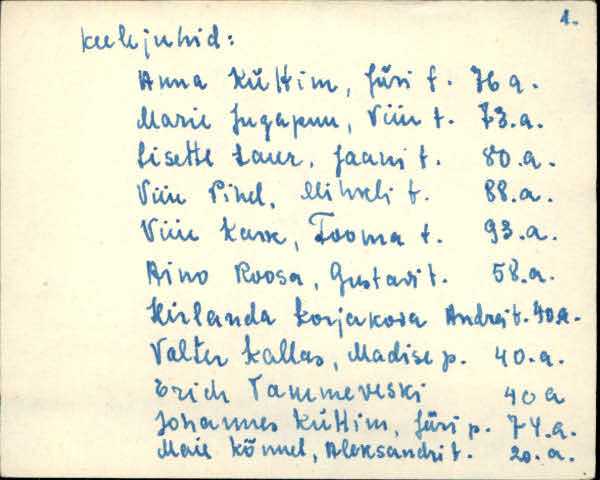 1.
keelejuhid:
Anna Küttim, Jüri t. 76 a.
Marie Jugapuu, Viiu t. 73.a.
Lisette Laur, Jaani t. 80.a.
Viiu Pihel, Mihkli t. 88.a.
Viiu Kask, Tooma t. 93.a.
Aino Roosa, Gustavi t. 58.a.
Hirlanda Korjakova Andrei t. 40.a.
Valter Kallas, Madise p. 40.a.
Erich Tammeveski 40 a
Johannes Küttim, Jüri p. 74.a.
Maie Kõnnel, Aleksandri t. 20.a.